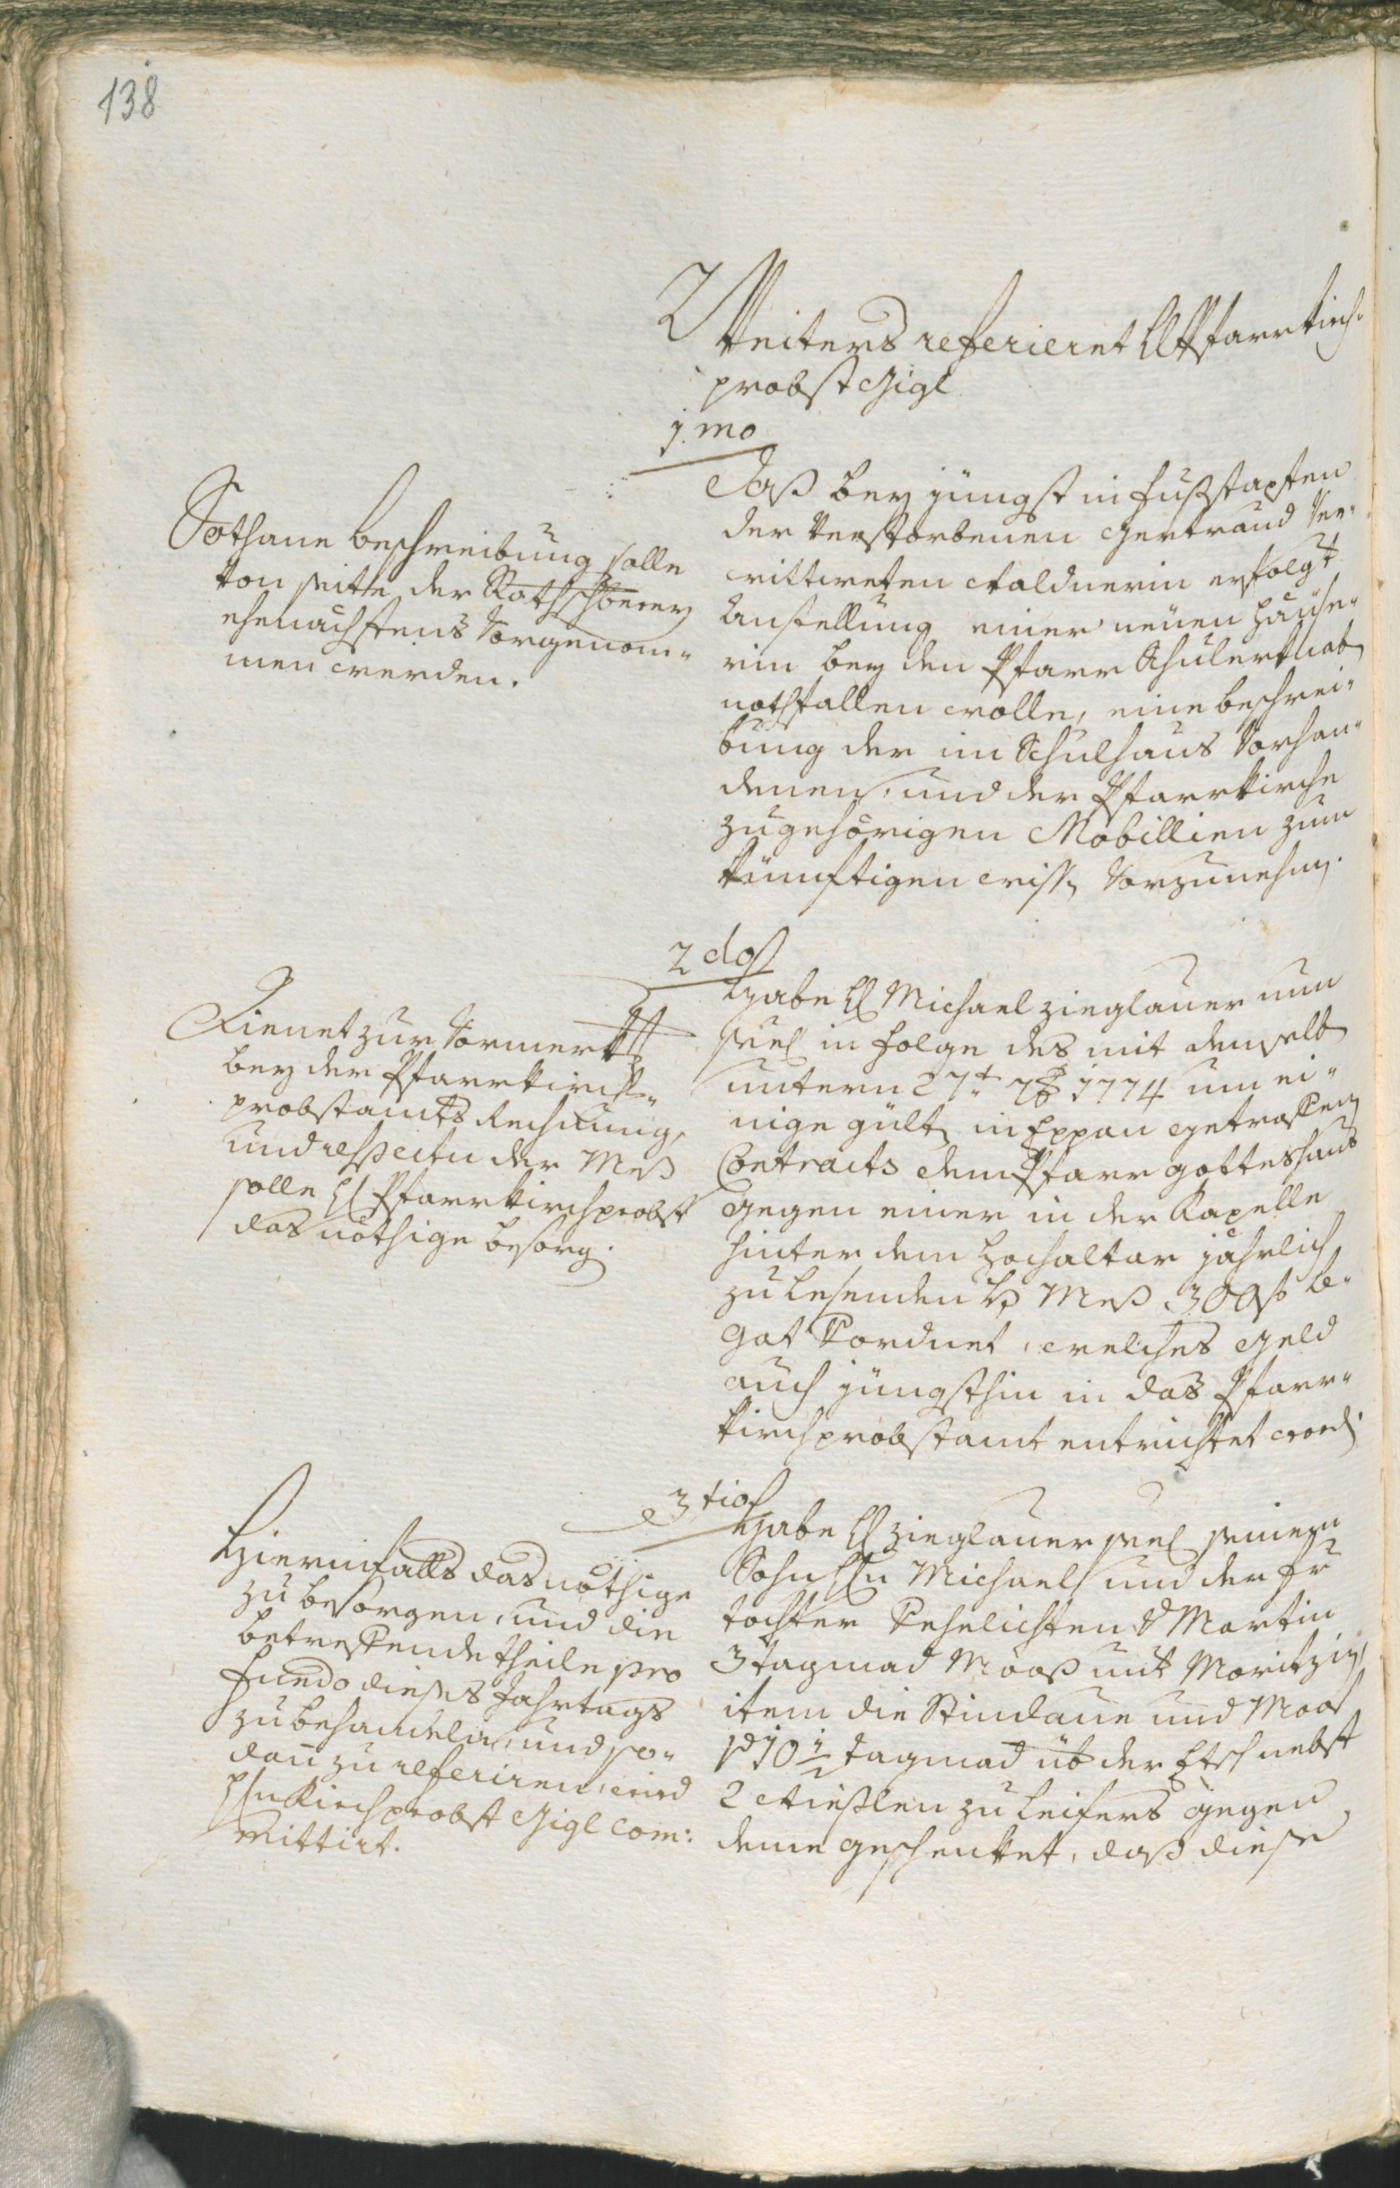 138
Weiters referieret H Pfarrkirch„
probst Gigl
1.mo
Daß bey jüngst in fußstapfen
der verstorbenen Gertraud Ver„
wittweten Waldnerin erfolgt
Anstellung einer neuen Häuse„
rin bey den Pfarr Schulerknab
nothfallen wolle, eine beschrei„
bung der im Schulhaus Vorhan„
denen, und der Pfarrkirche
zugehörigen Mobillien zum
künftigen wissen Vorzunehm.
Sothane beschreibung solle
von seithe der
ehenächstens Vorgenom„
men werden.
2do
Habe H Michael Zieglauer nun
seel in folge des mit demselb
untern 27t 7b 1774 um ei„
nige gült in Eppan getroffenen
Contracts dem Pfarr gotteshaus
gegen einer in der Kapelle
hinter dem Hochaltar jährlich
zu lesenden H Meß 300 f le„
gat Verordnet, welches Geld
auch jüngsthin in das Pfarr„
kirchprobstamt entrichtet word.
Dienet zur Vormerkung
bey der Pfarrkirch„
probstamts Rechnung,
und respectu der Meß
solle H Pfarrkirchprobst
das nöthige besorg.
3tio
Habe H Zieglauer seel seinem
Sohn Hn Michael und der Fr
tochter Verehelichten v Martin
3 tagmad Mooß mit Moritzing,
item die Stindaune und Moos
pr 10 1/2 tagmad üb der Etsch nebst
2 Wießlen zu Leifers gegen
deme geschenket, daß diese
Hiernfalls das nöthige
zu besorgen, und die
betreffende theile pro
fundo dieses Jahrtags
zu behandeln, und so„
dan zu referiren, wird
Hn Kirchprobst Gigl com:
mittirt.